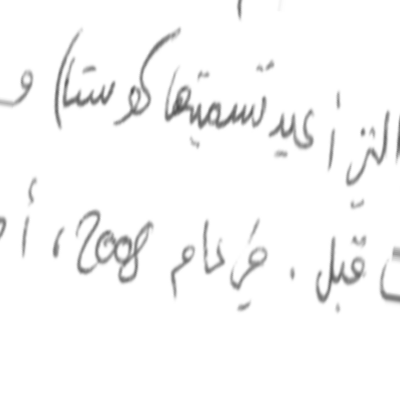 التي أعيد تسميتها كوستا) و
قبل. في عام 2008، أ